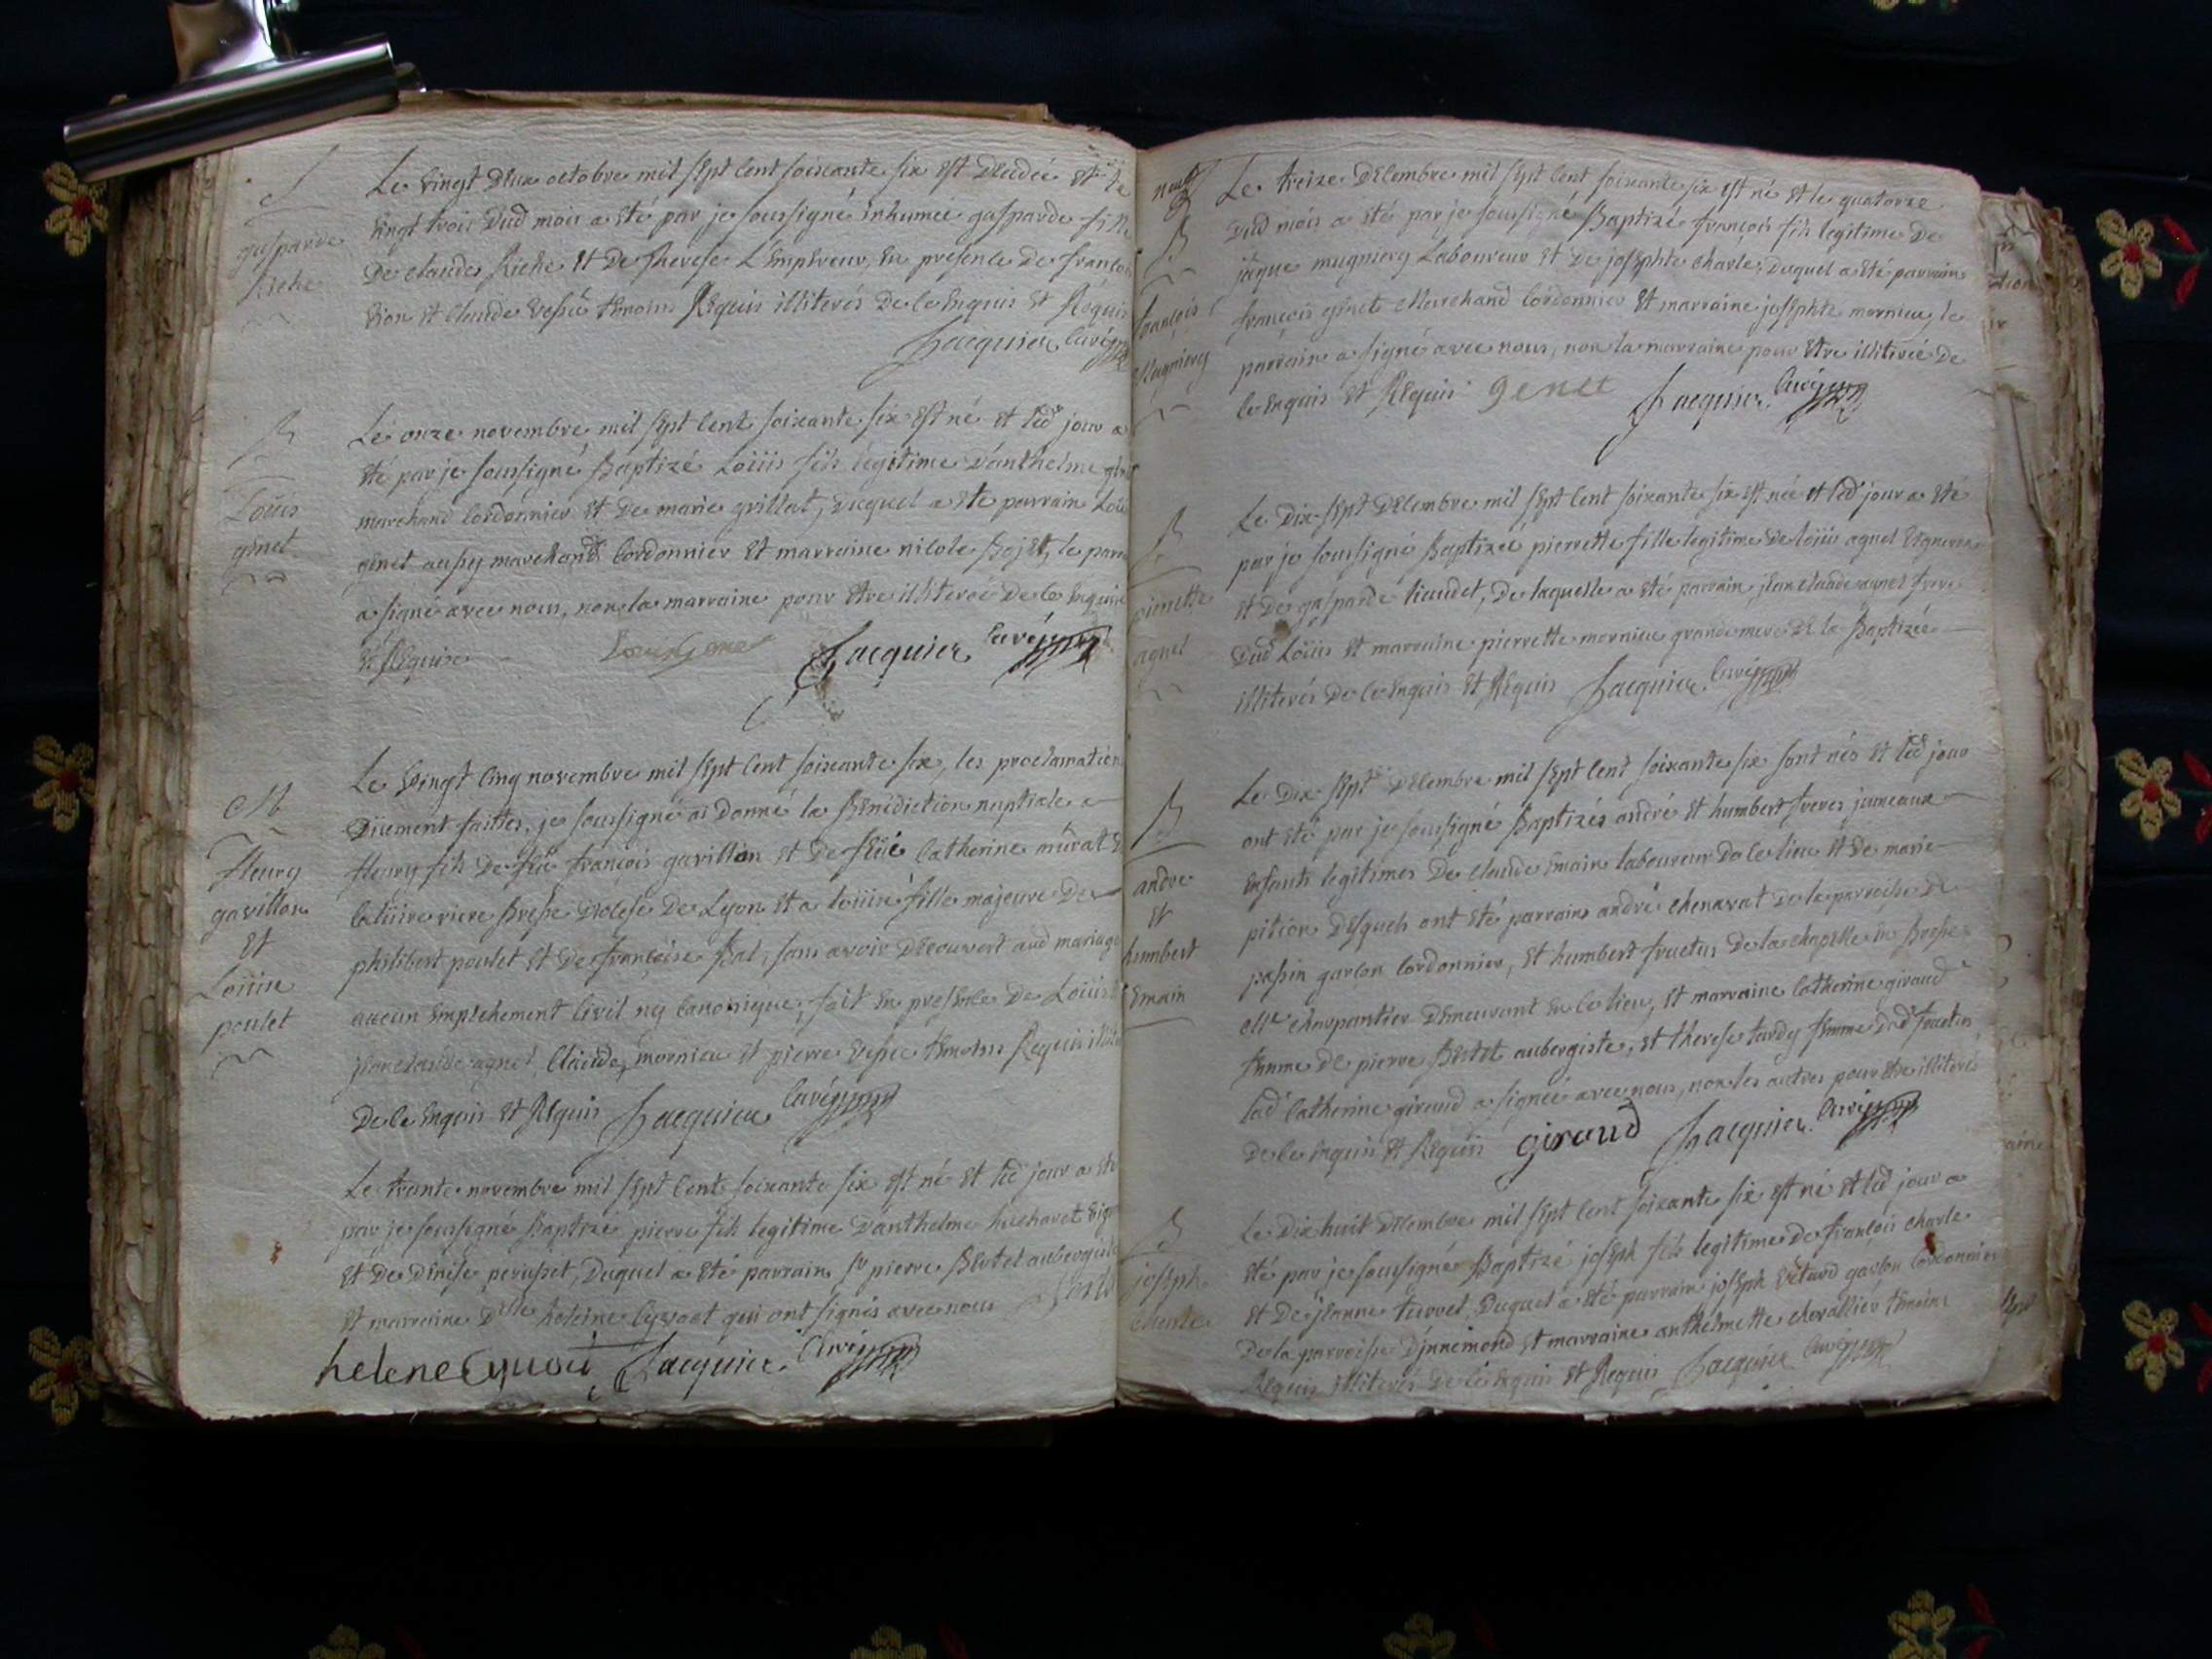 gasparde
Riche
Le vingt deux octobre mil sept cent soixante six est decedée et le
vingt trois dud mois a eté par je soussigné inhumée gasparde fille
De claude Riche et De Therese L'Empereur, en presence de francois
et claude témoins Requis illiterés De ce enquis et Réquis
Jacquier curé
B
Loüis
genet
Le onze novembre mil sept cent soixante six est né et led jour a
eté par je soussigné Baptizé Loüis fils légitime d'anthelme genet
marchand cordonnier et De marie grillat, duquel a ete parrain Loüis
genet aussy marchand cordonnier et marraine nicole Bojet, le parrain
a signé avec nous, non la marraine pour etre illiterée De ce enquise
et Requise
Louis Genet Jacquier curé
M
fleury
gavillon
et
Loüise
poulet
Le vingt cinq novembre mil sept cent soixante six, les proclamations
Düement faittes, je soussigné ai donné la Bénédiction nuptiale a
fleury fils De feu françois gavillon et De feüe Catherine mûrat
riere Bresse Diocese De Lyon et a Loüise fille majeure De
philibert poulet et De françoise Bal, sans avoir Découvert aud mariage
aucun empechement civil ny canonique, fait en presence De Loüis
jean claude agnel, Claude mornieu et pierre témoins Requis
De ce enquis et Requis Jacquier curé
Le trente novembre mil sept cent soixante six est né et led jour a eté
par je soussigné Baptizé pierre fils legitime d'anthelme hucharet
et De Denise perusset, Duquel a eté parrain sr pierre Bertet aubergiste
et marraine Dlle heleine qui ont signés avec nous
helene Jacquier curé
B
françois
Mugniery
Le treize Decembre mil sept cent soixante six est né et le quatorze
dud mois a eté par je soussigné Baptizé françois fils legitime De
jâque mugniery Laboureur et De josephte charle, duquel a eté parrain
françois genet Marchand cordonnier et marraine josephte mornieu, le
parrain a signé avec nous, non la marraine pour etre illiterée De
ce enquis et Requis genet Jacquier curé
B
pierrette
agnel
Le Dix-sept Decembre mil sept cent soixante six est née et led jour a eté
par je soussigné Baptizée pierrette fille legitime De loüis agnel vigneron
et De gasparde liaudet, De laquelle a eté parrain jean claude agnel frere
Dud Loüis et marraine pierrette mornieu grande mere De la Baptizée
illiterés De ce enquis et Requis Jacquier curé
B
andre
et
humbert
Emain
Le Dix-sept Decembre mil sept cent soixante six sont nés et led jour
ont eté par je soussigné Baptizés andré et humbert freres jumeaux
enfants legitimes De claude Emain laboureur De ce lieu et De marie
pition Desquels ont eté parrains andré chenavat De la parroisse De
passin garçon cordonnier, et humbert fructus De la chapelle en Bresse
Me charpantier Demeurant en ce lieu, et marraine Catherine giraud
femme De pierre Bertet aubergiste, et therese tardy femme dud fructus
lad Catherine giraud a signée avec nous, non les autres pour etre illiterés
De ce enquis et Requis giraud Jacquier curé
B
joseph
charle
Le Dix huit Decembre mil sept cent soixante six est né et led jour a
eté par je soussigné Baptizé joseph fils legitime De françois charle
et De jeanne turvet, Duquel a eté parrain joseph garçon cordonnier
De la parroisse D'jnnimond et marraine anthelmette chevallier témoins
Requis illiterés De ce enquis et Requis Jacquier curé